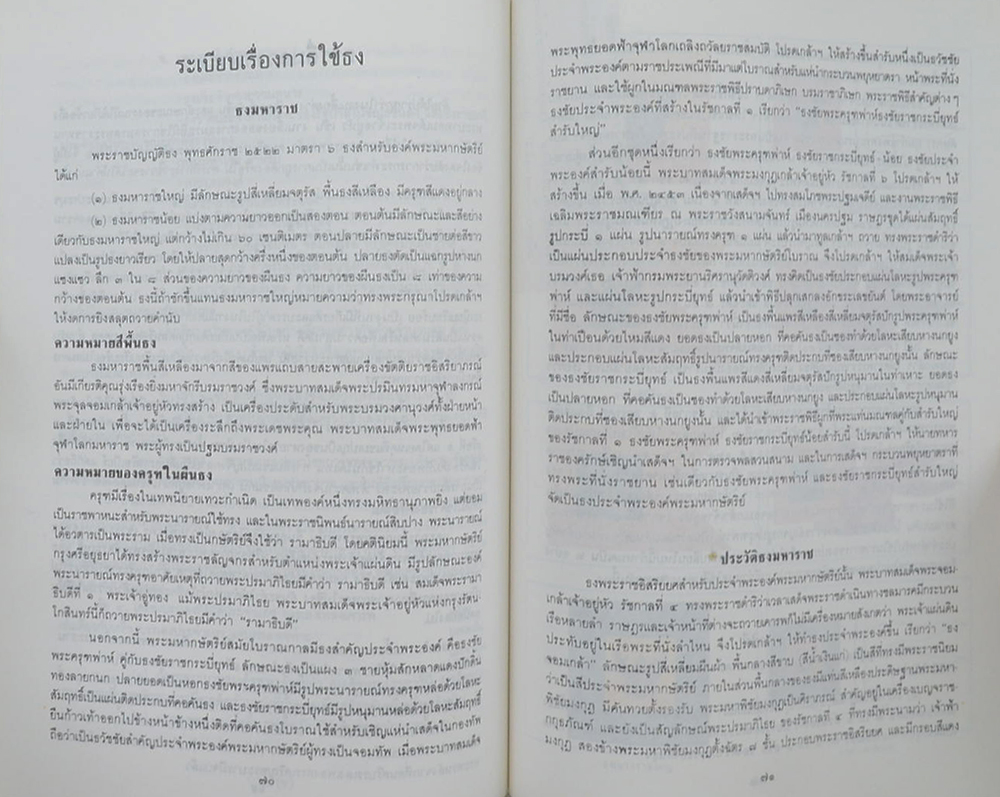 ระเบียบเรื่องการใช้ธง
ธงมหาราช
พระราชบัญญัติธง พุทธศักราช ๒๕๒๒ มาตรา ๖ ธงสำหรับองค์พระมหากษัตริย์
ได้แก่
(๑) ธงมหาราชใหญ่ มีลักษณะรูปสี่เหลี่ยมจตุรัส พื้นธงสีเหลือง มีครุฑสีแดงอยู่กลาง
(๒) ธงมหาราชน้อย แบ่งตามความยาวออกเป็นสองตอน ตอนต้นมีลักษณะและสีอย่าง
เดียวกับธงมหาราชใหญ่ แต่กว้างไม่เกิน ๖๐ เซนติเมตร ตอนปลายมีลักษณะเป็นชายต่อสีขาว
แปลงเป็นรูปธงยาวเรียว โดยให้ปลายสุดกว้างครึ่งหนึ่งของตอนต้น ปลายธงตัดเป็นแฉกรูปหางนก
แซงแซว ลึก ๓ ใน ๘ ส่วนของความยาวของผืนธง ความยาวของผืนธงเป็น ๘ เท่าของความ
กว้างของตอนต้น ธงนี้ถ้าชักขึ้นแทนธงมหาราชใหญ่หมายความว่าทรงพระกรุณาโปรดเกล้าฯ
ให้งดการยิงสลุตถวายคำนับ
ความหมายสีพื้นธง
ธงมหาราชพื้นสีเหลืองมาจากสีของแพรแถบสายสะพายเครื่องขัตติยราชอิสริยาภรณ์
อันมีเกียรติคุณรุ่งเรืองยิ่งมหาจักรีบรมราชวงศ์ ซึ่งพระบาทสมเด็จพระปรมินทรมหาจุฬาลงกรณ์
พระจุลจอมเกล้าเจ้าอยู่หัวทรงสร้าง เป็นเครื่องประดับสำหรับพระบรมวงศานุวงศ์ทั้งฝ่ายหน้า
และฝ่ายใน เพื่อจะได้เป็นเครื่องระลึกถึงพระเดชพระคุณ พระบาทสมเด็จพระพุทธยอดฟ้า
จุฬาโลกมหาราช พระผู้ทรงเป็นปฐมบรมราชวงศ์
ความหมายของครุฑในผืนธง
ครุฑมีเรื่องในเทพนิยายเทวะกำเนิด เป็นเทพองค์หนึ่งทรงมหิทธานุภาพยิ่ง แต่ยอม
เป็นราชพาหนะสำหรับพระนารายณ์ใช้ทรง และในพระราชนิพนธ์นารายณ์สิบปาง พระนารายณ์
ได้อวตารเป็นพระราม เมื่อทรงเป็นกษัตริย์จึงใช้ว่า รามาธิบดี โดยคตินิยมนี้ พระมหากษัตริย์
กรุงศรีอยุธยาได้ทรงสร้างพระราชลัญจกรสำหรับตำแหน่งพระเจ้าแผ่นดิน มีรูปลักษณะองค์
พระนารายณ์ทรงครุฑอาศัยเหตุที่ถวายพระปรมาภิไธยมีคำว่า รามาธิบดี เช่น สมเด็จพระรามา
ธิบดีที่ ๑ พระเจ้าอู่ทอง แม้พระปรมาภิไธย พระบาทสมเด็จพระเจ้าอยู่หัวแห่งกรุงรัตน-
โกสินทร์นี้ก็ถวายพระปรมาภิไธยมีคำว่า “รามาธิบดี”
นอกจากนี้ พระมหากษัตริย์สมัยโบราณกาลมีธงสำคัญประจำพระองค์ คือธงชัย
พระครุฑพ่าห์ คู่กับธงชัยราชกระบี่ยุทธ์ ลักษณะธงเป็นแผง ๓ ชายหุ้มสักหลาดแดงปักดิ้น
ทองลายกนก ปลายยอดเป็นหอกธงชัยพระครุฑพ่าห์มีรูปพระนารายณ์ทรงครุฑหล่อด้วยโลหะ
สัมฤทธิ์เป็นแผ่นติดประกบที่คอคันธง และธงราชกระบี่ยุทธ์มีรูปหนุมานหล่อด้วยโลหะสัมฤทธิ์
ยืนก้าวเท้าออกไปข้างหน้าข้างหนึ่งติดที่คอคันธงโบราณใช้สำหรับเชิญแห่นำเสด็จในกองทัพ
ถือว่าเป็นธวัชชัยสำคัญประจำพระองค์พระมหากษัตริย์ผู้ทรงเป็นจอมทัพ เมื่อพระบาทสมเด็จ
๗๐
พระพุทธยอดฟ้าจุฬาโลกเถลิงถวัลยราชสมบัติ โปรดเกล้าฯ ให้สร้างขึ้นสำรับหนึ่งเป็นธวัชชัย
ประจำพระองค์ตามราชประเพณีที่มีมาแต่โบราณสำหรับแห่นำกระบวนพยุหยาตรา หน้าพระที่นั่ง
ราชยาน และใช้ผูกในมณฑลพระราชพิธีปราบดาภิเษก บรมราชาภิเษก พระราชพิธีสำคัญต่างๆ
ธงชัยประจำพระองค์ที่สร้างในรัชกาลที่ ๑ เรียกว่า “ธงชัยพระครุฑพ่าห์ธงชัยราชกระบี่ยุทธ์
สำรับใหญ่”
ส่วนอีกชุดหนึ่งเรียกว่า ธงชัยพระครุฑพ่าห์ ธงชัยราชกระบี่ยุทธ์-น้อย ธงชัยประจำ
พระองค์สำรับน้อยนี้ พระบาทสมเด็จพระมงกุฎเกล้าเจ้าอยู่หัว รัชกาลที่ ๖ โปรดเกล้าฯ ให้
สร้างขึ้น เมื่อ พ.ศ. ๒๔๕๓ เนื่องจากเสด็จฯ ไปทรงสมโภชพระปฐมเจดีย์ และงานพระราชพิธี
เฉลิมพระราชมณเฑียร ณ พระราชวังสนามจันทร์ เมืองนครปฐม ราษฎรขุดได้แผ่นสัมฤทธิ์
รูปกระบี่ ๑ แผ่น รูปนารายณ์ทรงครุฑ ๑ แผ่น แล้วนำมาทูลเกล้าฯ ถวาย ทรงพระราชดำริว่า
เป็นแผ่นประกอบธงชัยของพระมหากษัตริย์ในโบราณ จึงโปรดเกล้าฯ ให้สมเด็จพระเจ้า
บรมวงศ์เธอ เจ้าฟ้ากรมพระยานริศรานุวัดติวงศ์ ทรงคิดเป็นธงชัยประกอบแผ่นโลหะรูปพระครุฑ
พ่าห์ และแผ่นโลหะรูปกระบี่ยุทธ์ แล้วนำเข้าพิธีปลุกเสกลงอักขระเลขยันต์ โดยพระอาจารย์
ที่มีชื่อ ลักษณะของธงชัยพระครุฑพ่าห์ เป็นธงพื้นแพรสีเหลืองสี่เหลี่ยมจตุรัสปักรูปพระครุฑพ่าห์
ในท่าเปือนด้วยไหมสีแดง ยอดธงเป็นปลายหอก ที่คอคันธงเป็นของทำด้วยโลหะเสียบหางนกยูง
และประกอบแผ่นโลหะสัมฤทธิ์รูปนารายณ์ทรงครุฑติดประกบที่ของเสียบหางนกยูงนั้น ลักษณะ
ของธงชัยราชกระบี่ยุทธ์ เป็นธงพื้นแพรสีแดงสี่เหลี่ยมจตุรัสปักรูปหนุมานในท่าเหาะ ยอดธง
เป็นปลายหอก ที่คอคันธงเป็นของทำด้วยโลหะเสียบหางนกยูง และประกอบแผ่นโลหะรูปหนุมาน
ติดประกบที่ของเสียบหางนกยูงนั้น และได้นำเข้าพระราชพิธีผูกที่พระแท่นมณฑลคู่กับสำรับใหญ่
ของรัชกาลที่ ๑ ธงชัยพระครุฑพ่าห์ ธงชัยราชกระบี่ยุทธ์น้อยสำรับนี้ โปรดเกล้าฯ ให้นายทหาร
ราชองครักษ์เชิญนำเสด็จฯ ในการตรวจพลสวนสนาม และในการเสด็จฯ กระบวนพยุหยาตราที่
ทรงพระที่นั่งราชยาน เช่นเดียวกับธงชัยพระครุฑพ่าห์ และธงชัยราชกระบี่ยุทธ์สำรับใหญ่
จัดเป็นธงประจำองค์พระมหากษัตริย์
ประวัติธงมหาราช
ธงพระราชอิสริยยศสำหรับประจำพระองค์พระมหากษัตริย์นั้น พระบาทสมเด็จพระจอม-
เกล้าเจ้าอยู่หัว รัชกาลที่ ๔ ทรงพระราชดำริว่าเวลาเสด็จพระราชดำเนินทางชลมารคมีกระบวน
เรือหลายลำ ราษฎรและเจ้าหน้าที่ต่างจะถวายเคารพก็ไม่มีเครื่องหมายสังเกตว่า พระเจ้าแผ่นดิน
ประทับอยู่ในเรือพระที่นั่งลำไหน จึงโปรดเกล้าฯ ให้ทำธงประจำพระองค์ขึ้น เรียกว่า “ธง
จอมเกล้า” ลักษณะรูปสี่เหลี่ยมผืนผ้า พื้นกลางสีขาบ (สีน้ำเงินแก่) เป็นสีที่ทรงมีพระราชนิยม
ว่าเป็นสีประจำพระมหากษัตริย์ ภายในส่วนพื้นกลางของธงมีแท่นสีเหลืองประดิษฐานพระมหา-
พิชัยมงกุฎ มีคันทวยตั้งรองรับ พระมหาพิชัยมงกุฎเป็นศิราภรณ์ สำคัญอยู่ในเครื่องเบญจราช-
กกุธภัณฑ์ และยังเป็นสัญลักษณ์พระปรมาภิไธย ของรัชกาลที่ ๔ ที่ทรงมีพระนามว่า เจ้าฟ้า
มงกุฎ สองข้างพระมหาพิชัยมงกุฎตั้งฉัตร ๗ ชั้น ประกอบพระราชอิสริยยศ และมีกรอบสีแดง
๗๑